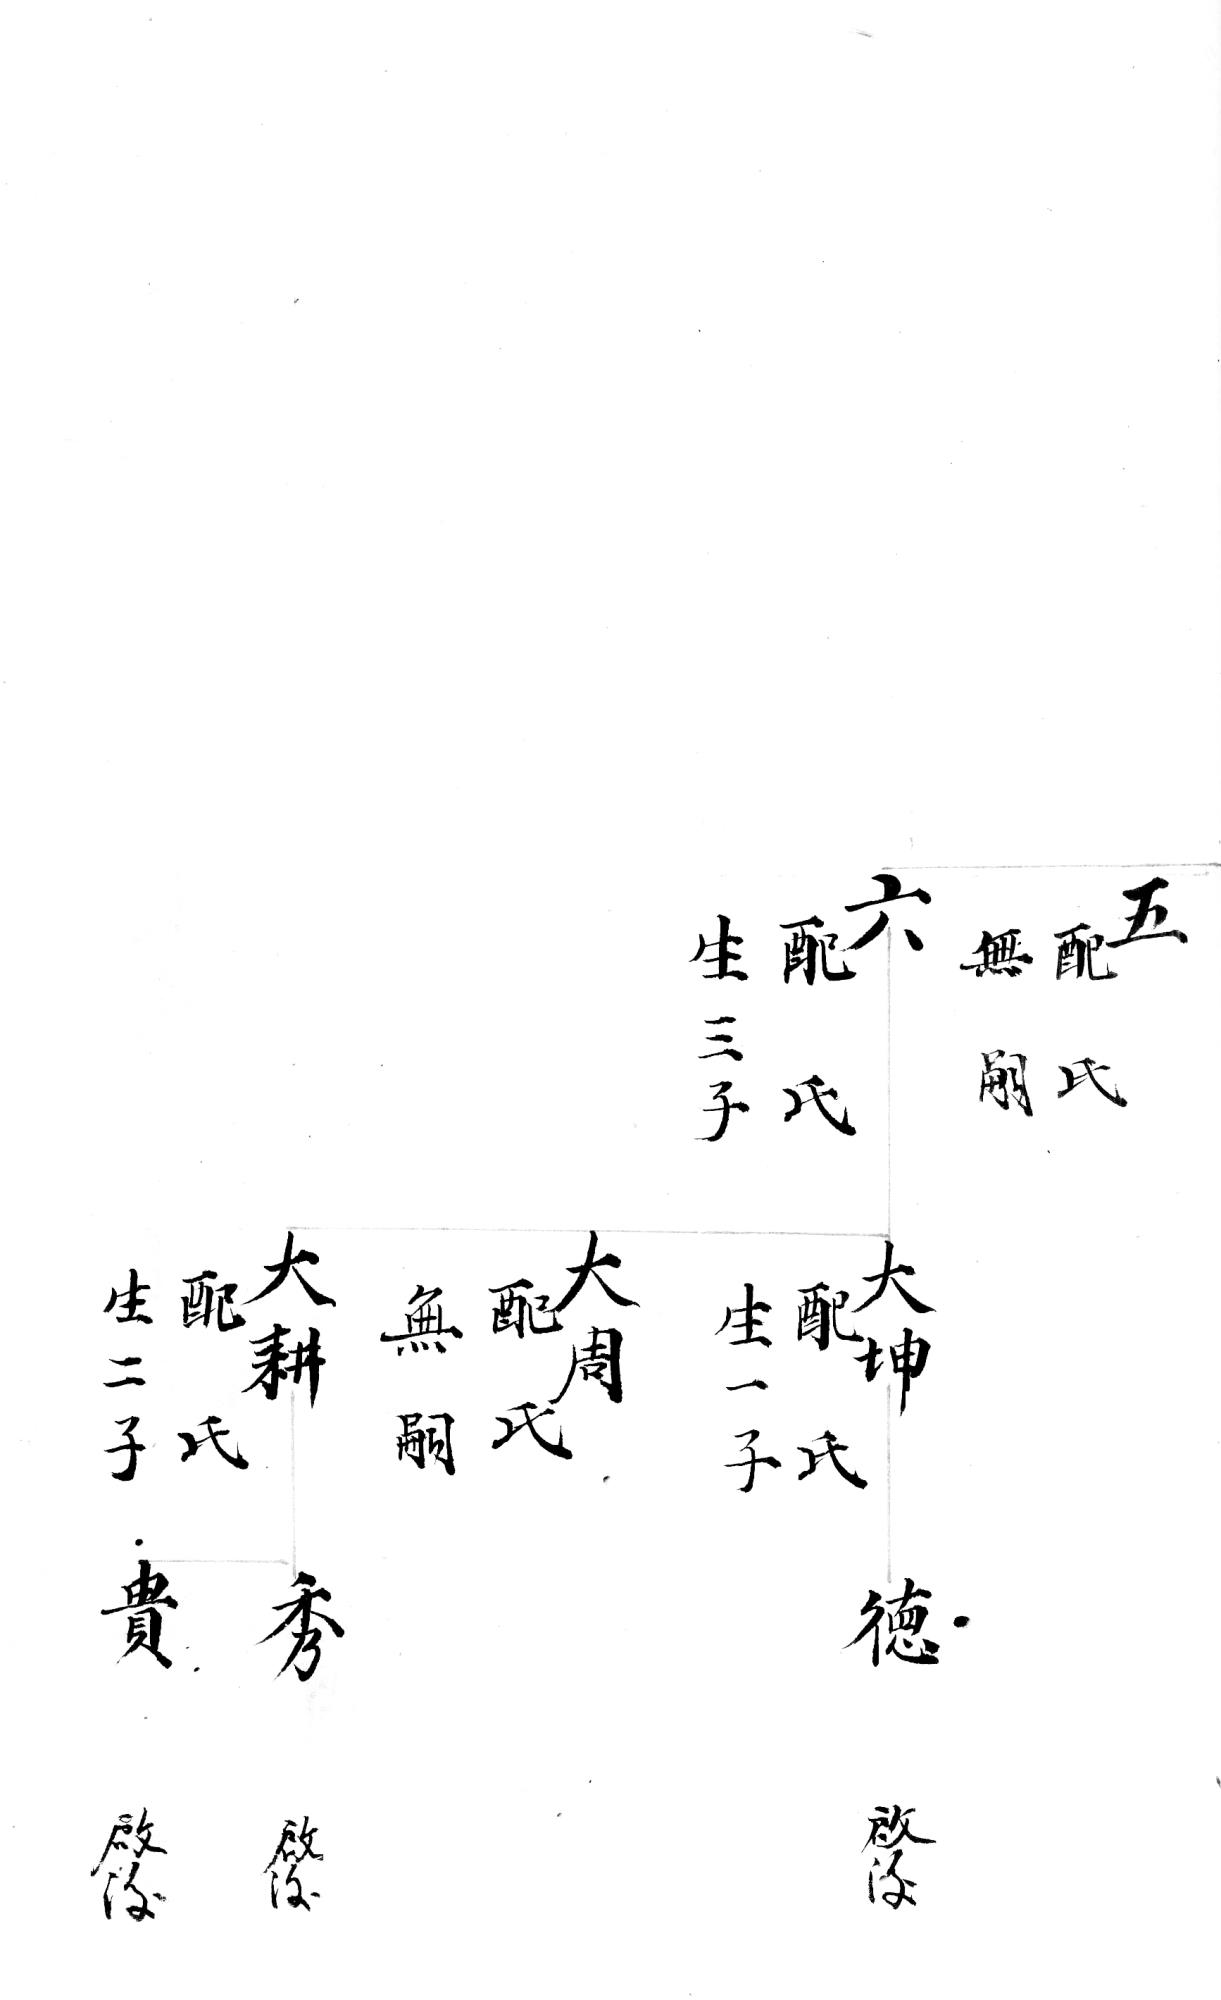 五
配氏
無嗣
六
配氏
生三子
大坤
配氏
生一子
大周
配氏
無嗣
大耕
配氏
生二子
德
秀
貴
啟後
啟後
啟後